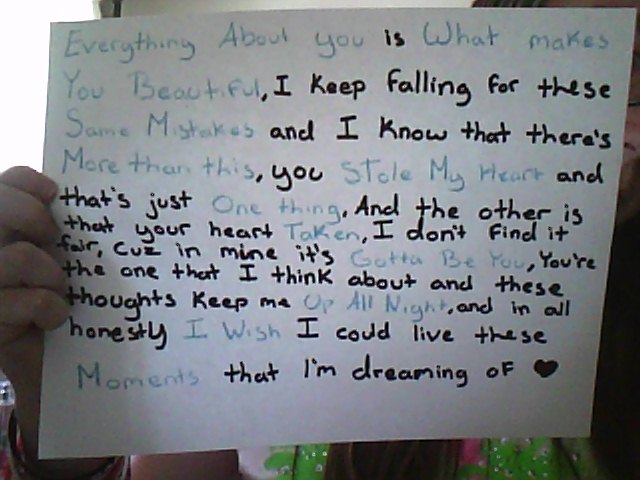 Everything About you is What makes
You Beautiful, I Keep falling for these
Same Mistakes and I Know that there's
More than this, you STole My Heart and
that's just One thing. And the other is
that your heart Taken, I don't find it
fair, cuz in mine it's Gotta Be You, You're
the one that I think about and these
thoughts Keep me Up All Night, and in all
honestly I Wish I could live these
Moments that I'm dreaming of ♥